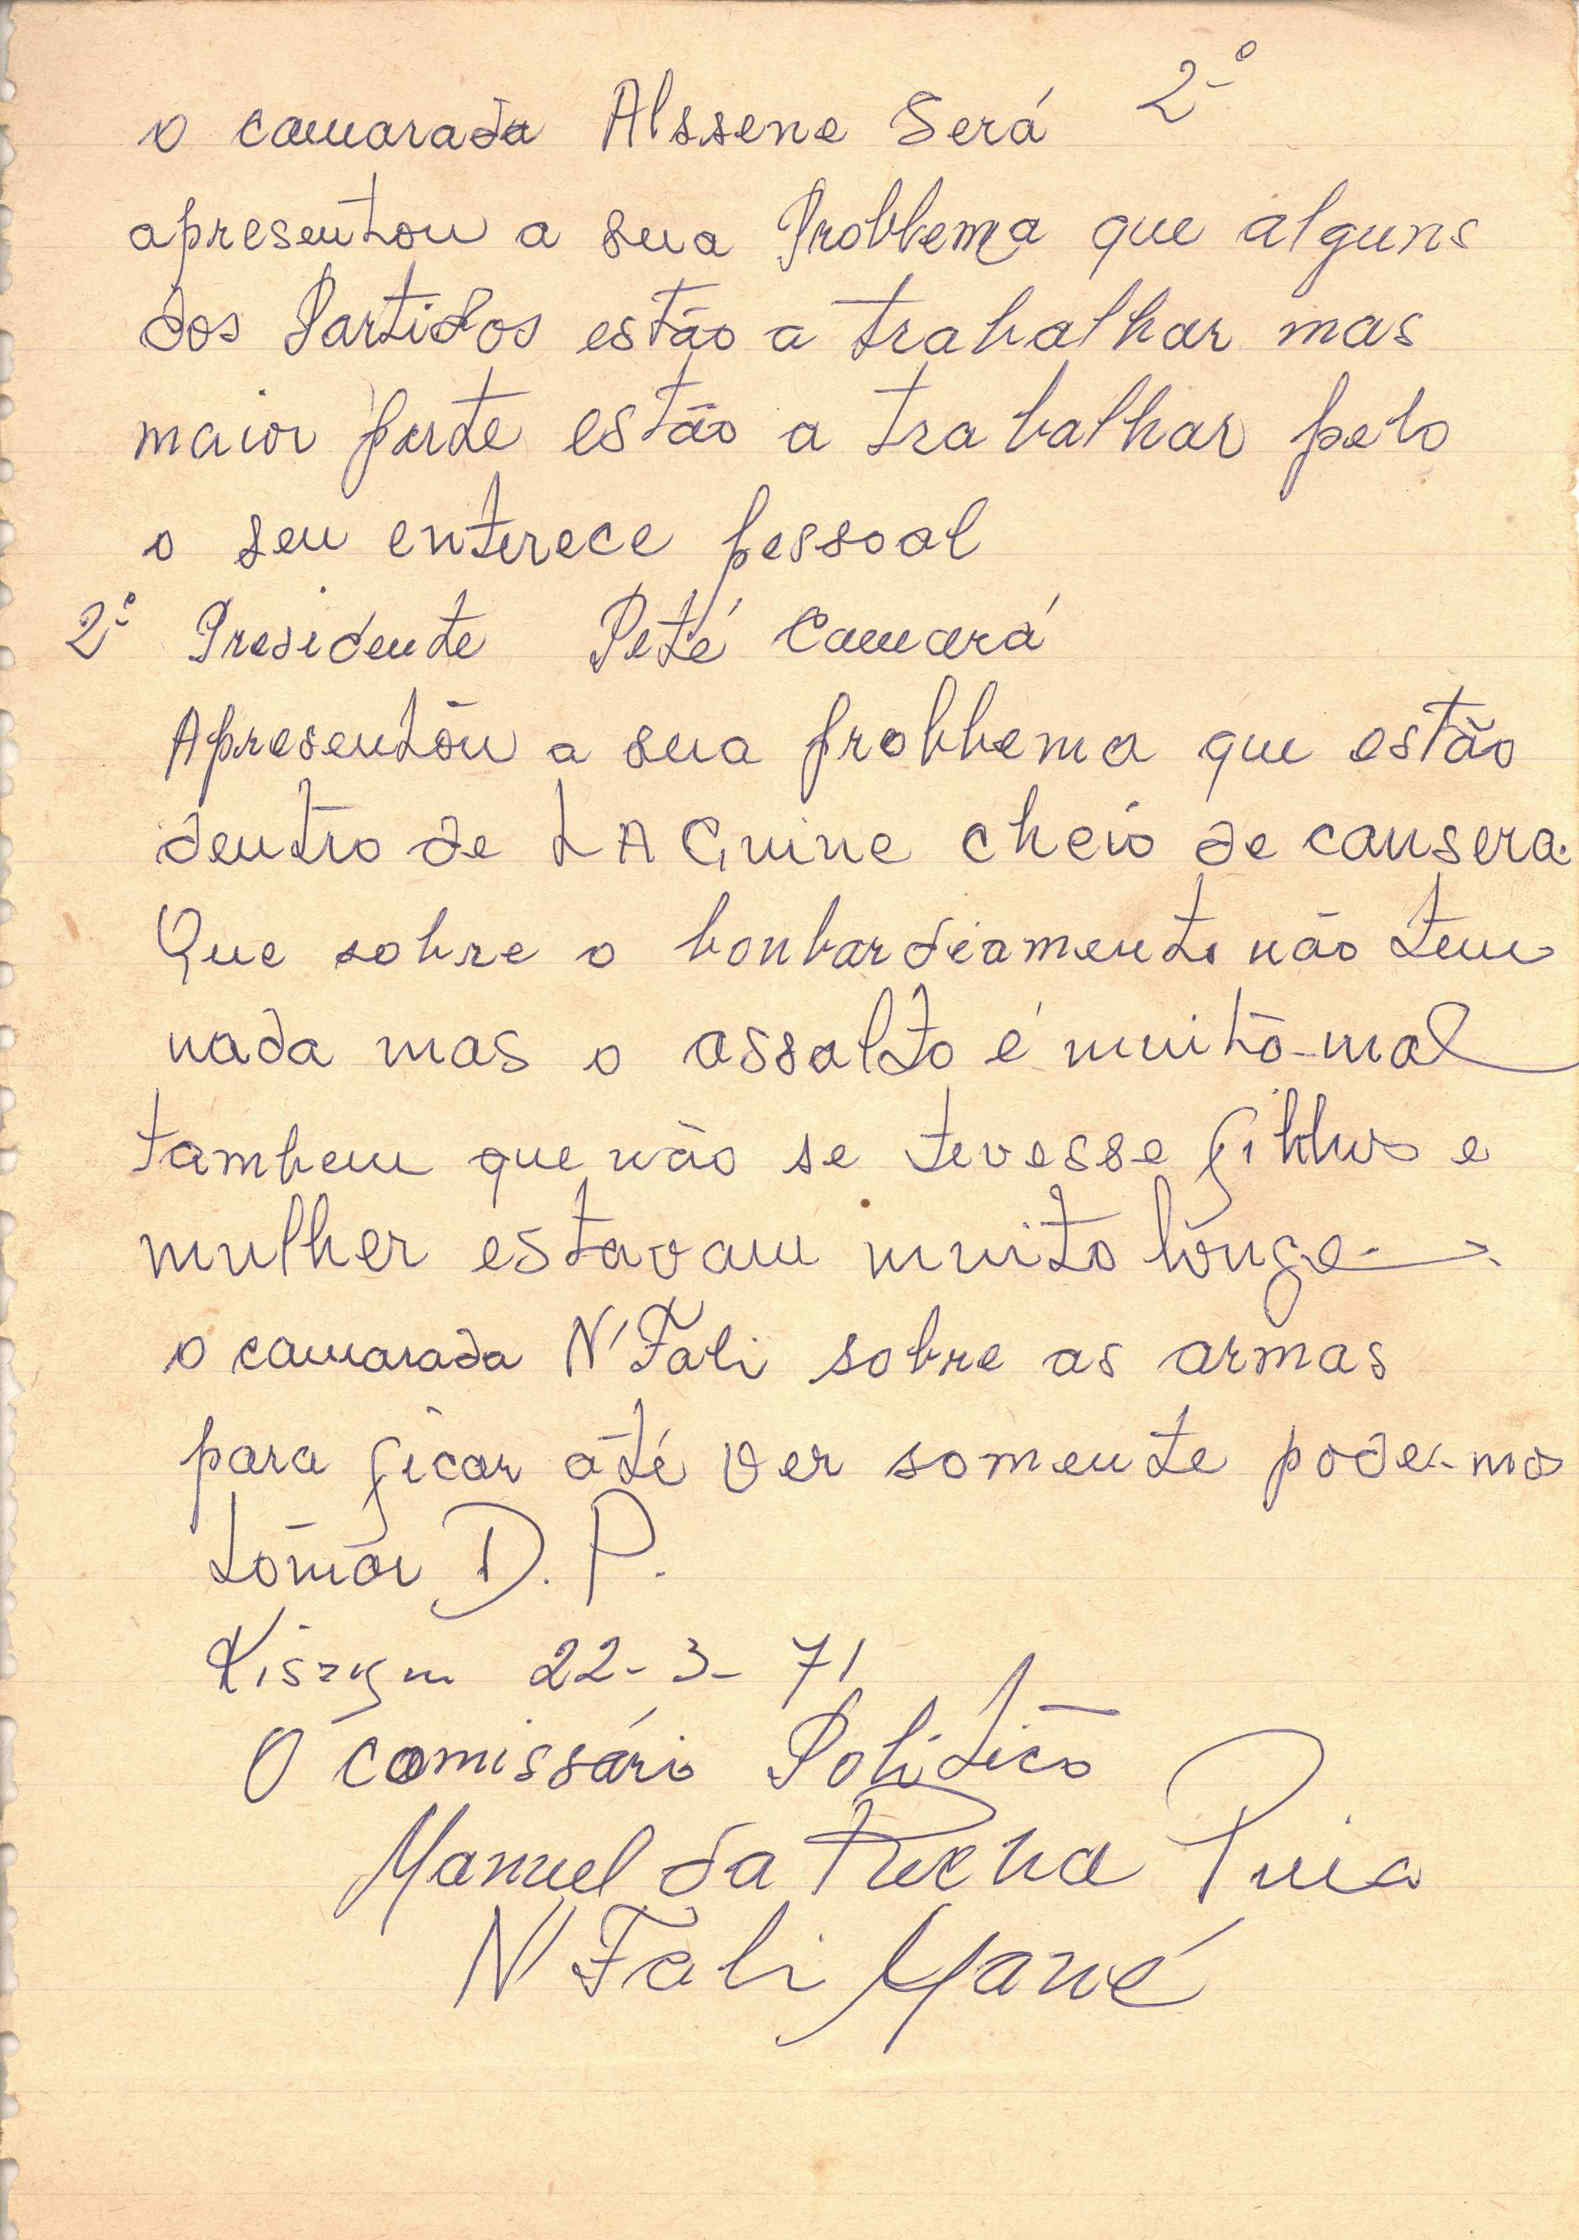 2º
o camarada Alssene Será
apresentou a sua Problema que alguns
dos Partidos estão a trabalhar mas
maior parte estão a trabalhar pelo
o seu enterece pessoal
2º Presidente Peté Camará
Apresentou a sua problema que estão
dentro de LA Guine cheio de cansera.
Que sobre o bonbardeamento não tem
nada mas o assalto é muito mal
tambem que não se tevesse filhos e
mulher estavam muito longe
o camarada N'Fali sobre as armas
para ficar até ver somente pode-mos
tomar D. P.
22-3-71
O comissário Politico
Manuel da
N'Fali Mané